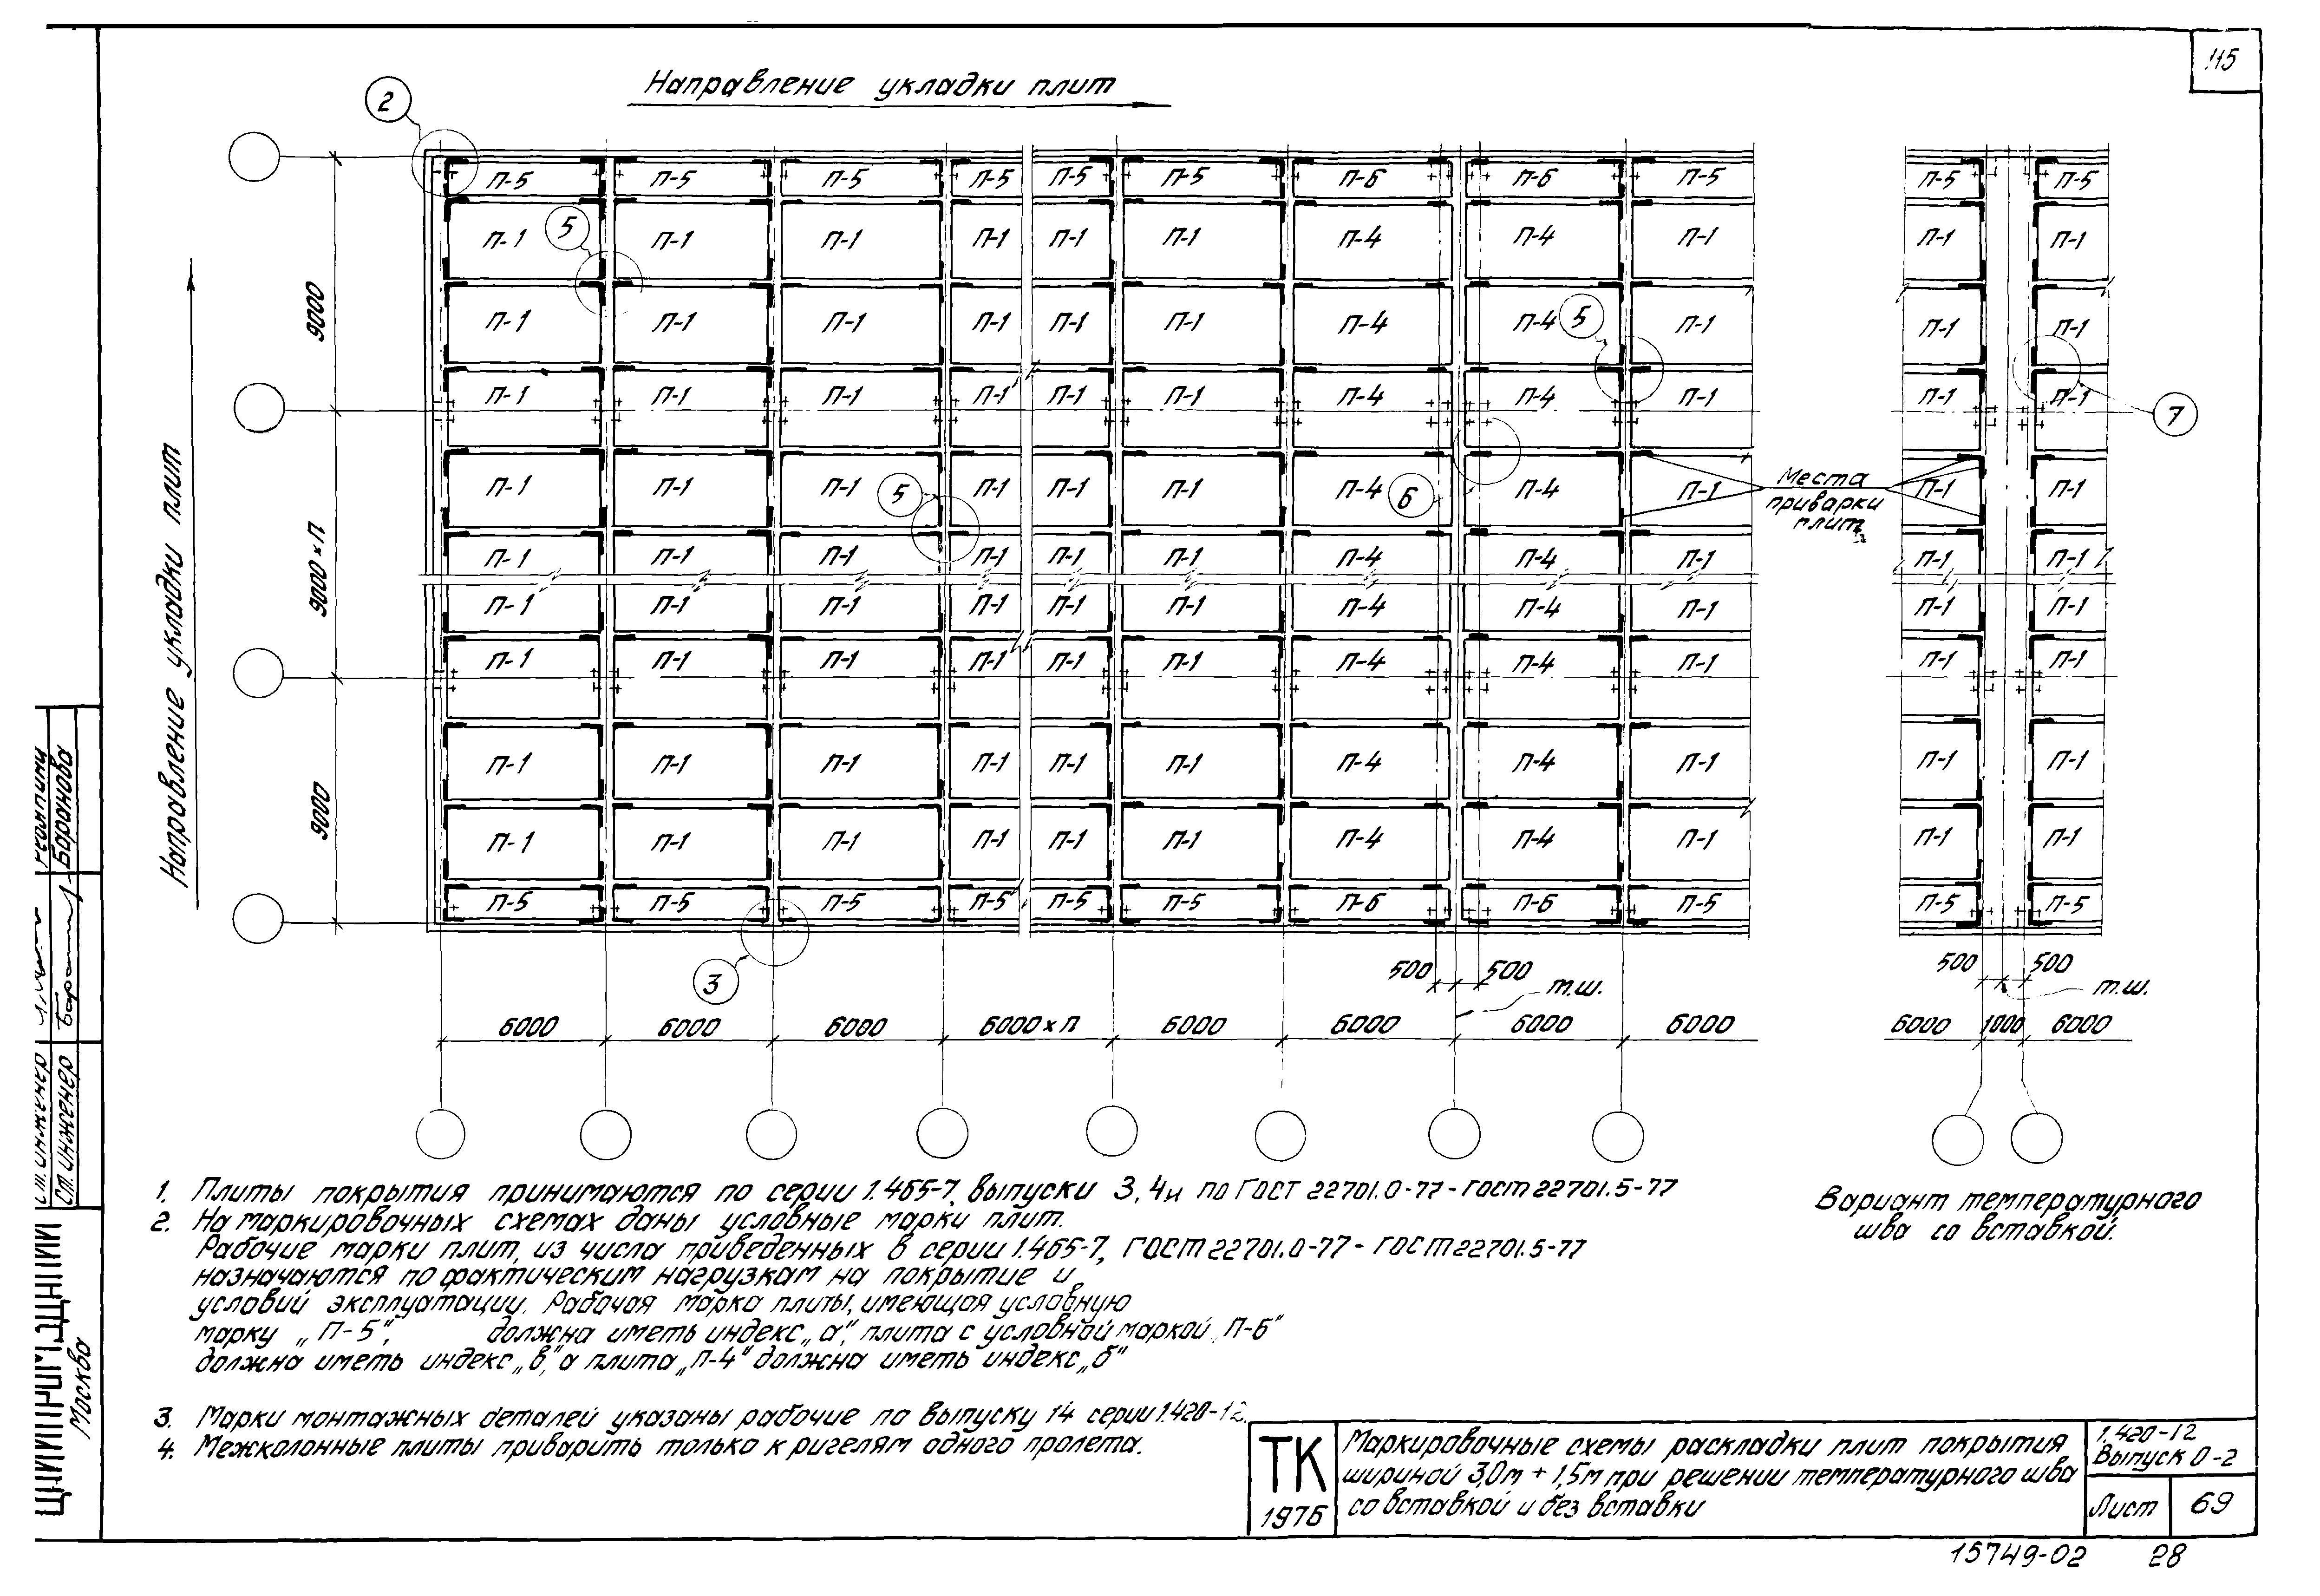 115
Направление укладки плит
2
П-5 П-5 П-5 П-5 П-5 П-5 П-6 П-6 П-5 П-5 П-5
5
П-1 П-1 П-1 П-1 П-1 П-1 П-4 П-4 П-1 П-1 П-1
9000
П-1 П-1 П-1 П-1 П-1 П-1 П-4 П-4 5 П-1 П-1 П-1
П-1 П-1 П-1 П-1 П-1 П-1 П-4 П-4 П-1 П-1 П-1
7
Направление укладки плит
П-1 П-1 П-1 5 П-1 П-1 П-1 П-4 6 П-4 П-1 П-1 П-1
Места
приварки
плит
9000×П
П-1 П-1 П-1 П-1 П-1 П-1 П-4 П-4 П-1 П-1 П-1
П-1 П-1 П-1 П-1 П-1 П-1 П-4 П-4 П-1 П-1 П-1
П-1 П-1 П-1 П-1 П-1 П-1 П-4 П-4 П-1 П-1 П-1
П-1 П-1 П-1 П-1 П-1 П-1 П-4 П-4 П-1 П-1 П-1
9000
П-1 П-1 П-1 П-1 П-1 П-1 П-4 П-4 П-1 П-1 П-1
П-5 П-5 П-5 П-5 П-5 П-5 П-6 П-6 П-5 П-5 П-5
3
500 500 500 500
т.ш. т.ш.
6000 6000 6000 6000×П 6000 6000 6000 6000 6000 1000 6000
1. Плиты покрытия принимаются по серии 1.465-7, выпуски 3,4и по ГОСТ 22701.0-77 - ГОСТ 22701.5-77
2. На маркировочных схемах даны условные марки плит.
Рабочие марки плит, из числа приведенных в серии 1.465-7, ГОСТ 22701.0-77 - ГОСТ 22701.5-77
назначаются по фактическим нагрузкам на покрытие и
условий эксплуатации. Рабочая марка плиты, имеющая условную
марку „П-5", должна иметь индекс „а", плита с условной маркой „П-6"
должна иметь индекс „в", а плита „П-4" должна иметь индекс „б"
3. Марки монтажных деталей указаны рабочие по выпуску 14 серии 1.420-12.
4. Межколонные плиты приварить только к ригелям одного пролета.
Вариант температурного
шва со вставкой.
ТК
1976
Маркировочные схемы раскладки плит покрытия
шириной 3,0м + 1,5м при решении температурного шва
со вставкой и без вставки
1.420-12
Выпуск 0-2
Лист 69
15749-02 28
Ст. инженер
Ст. инженер Баранова
Москва